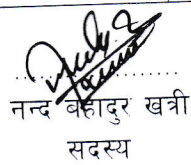 नन्द बहादुर खत्री
सदस्य